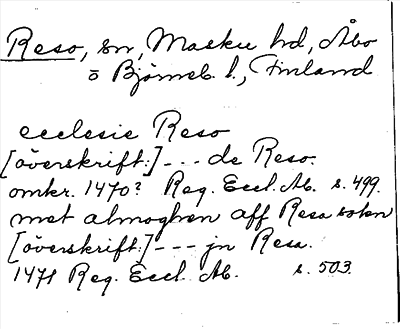 Reso, sn, Masku hd, Åbo
o Björneb. l., Finland
ecclesie Reso
[överskrift:] --- de Reso.
omkr. 1470? Reg. Eccl. Ab. s. 499.
met almoghen aff Resa sokn
[överskrift:] --- jn Resa.
1471 Reg. Eccl. Ab. s. 503.